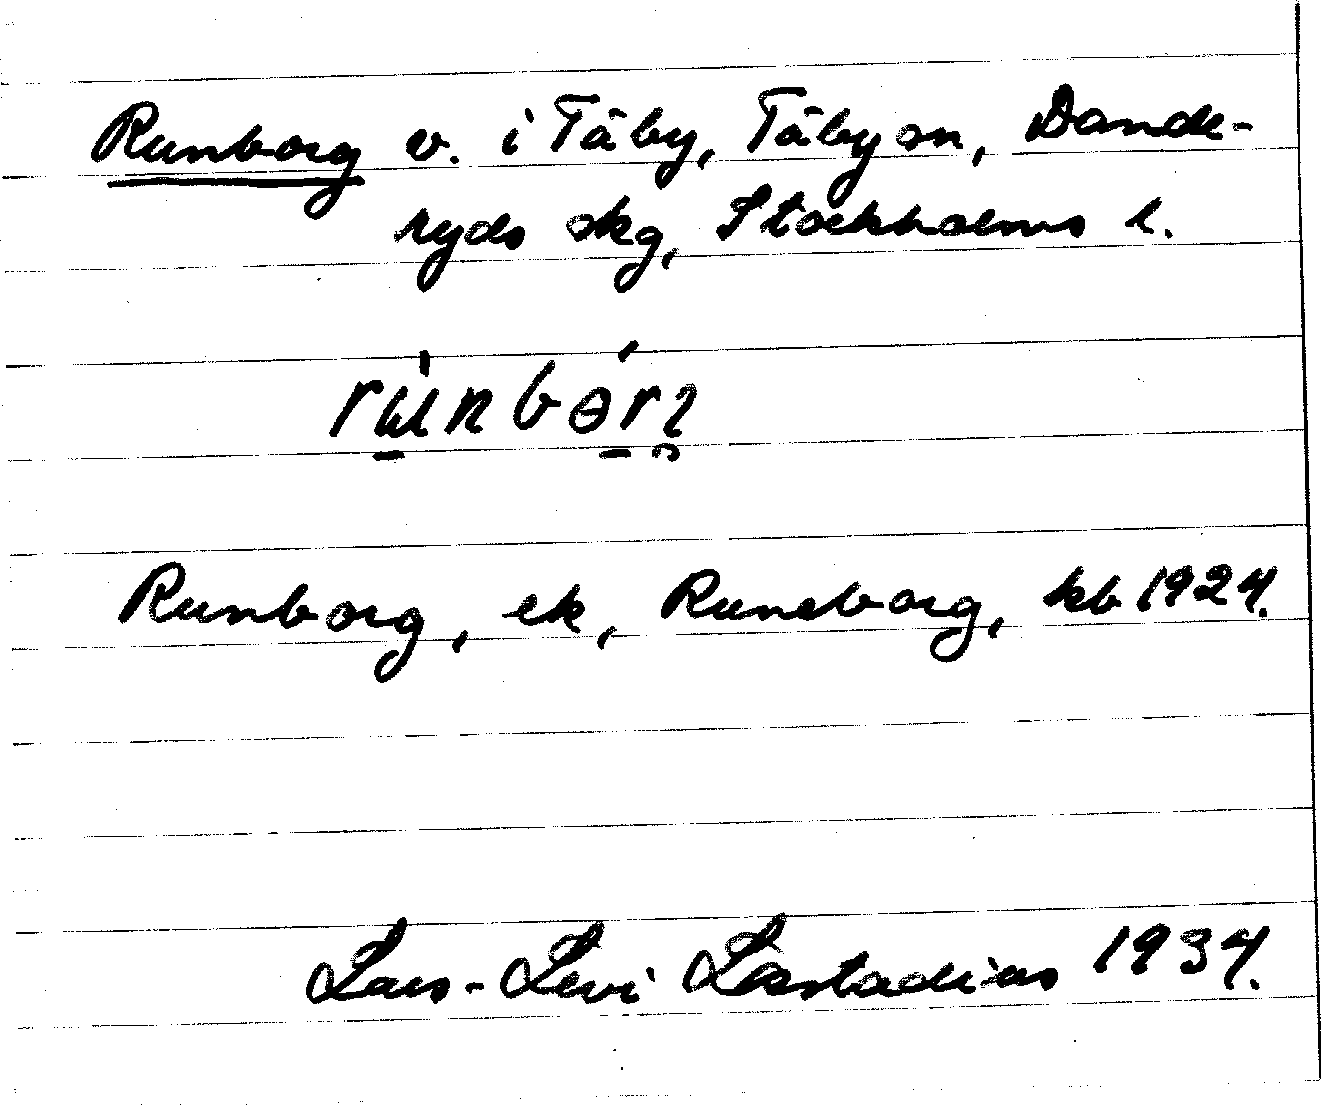 Runborg v. i Täby, Täby sn, Dande-
ryds skg, Stockholms l.
Runborg, ek, Runeborg, kb 1924.
Lars-Levi Læstadius 1934.